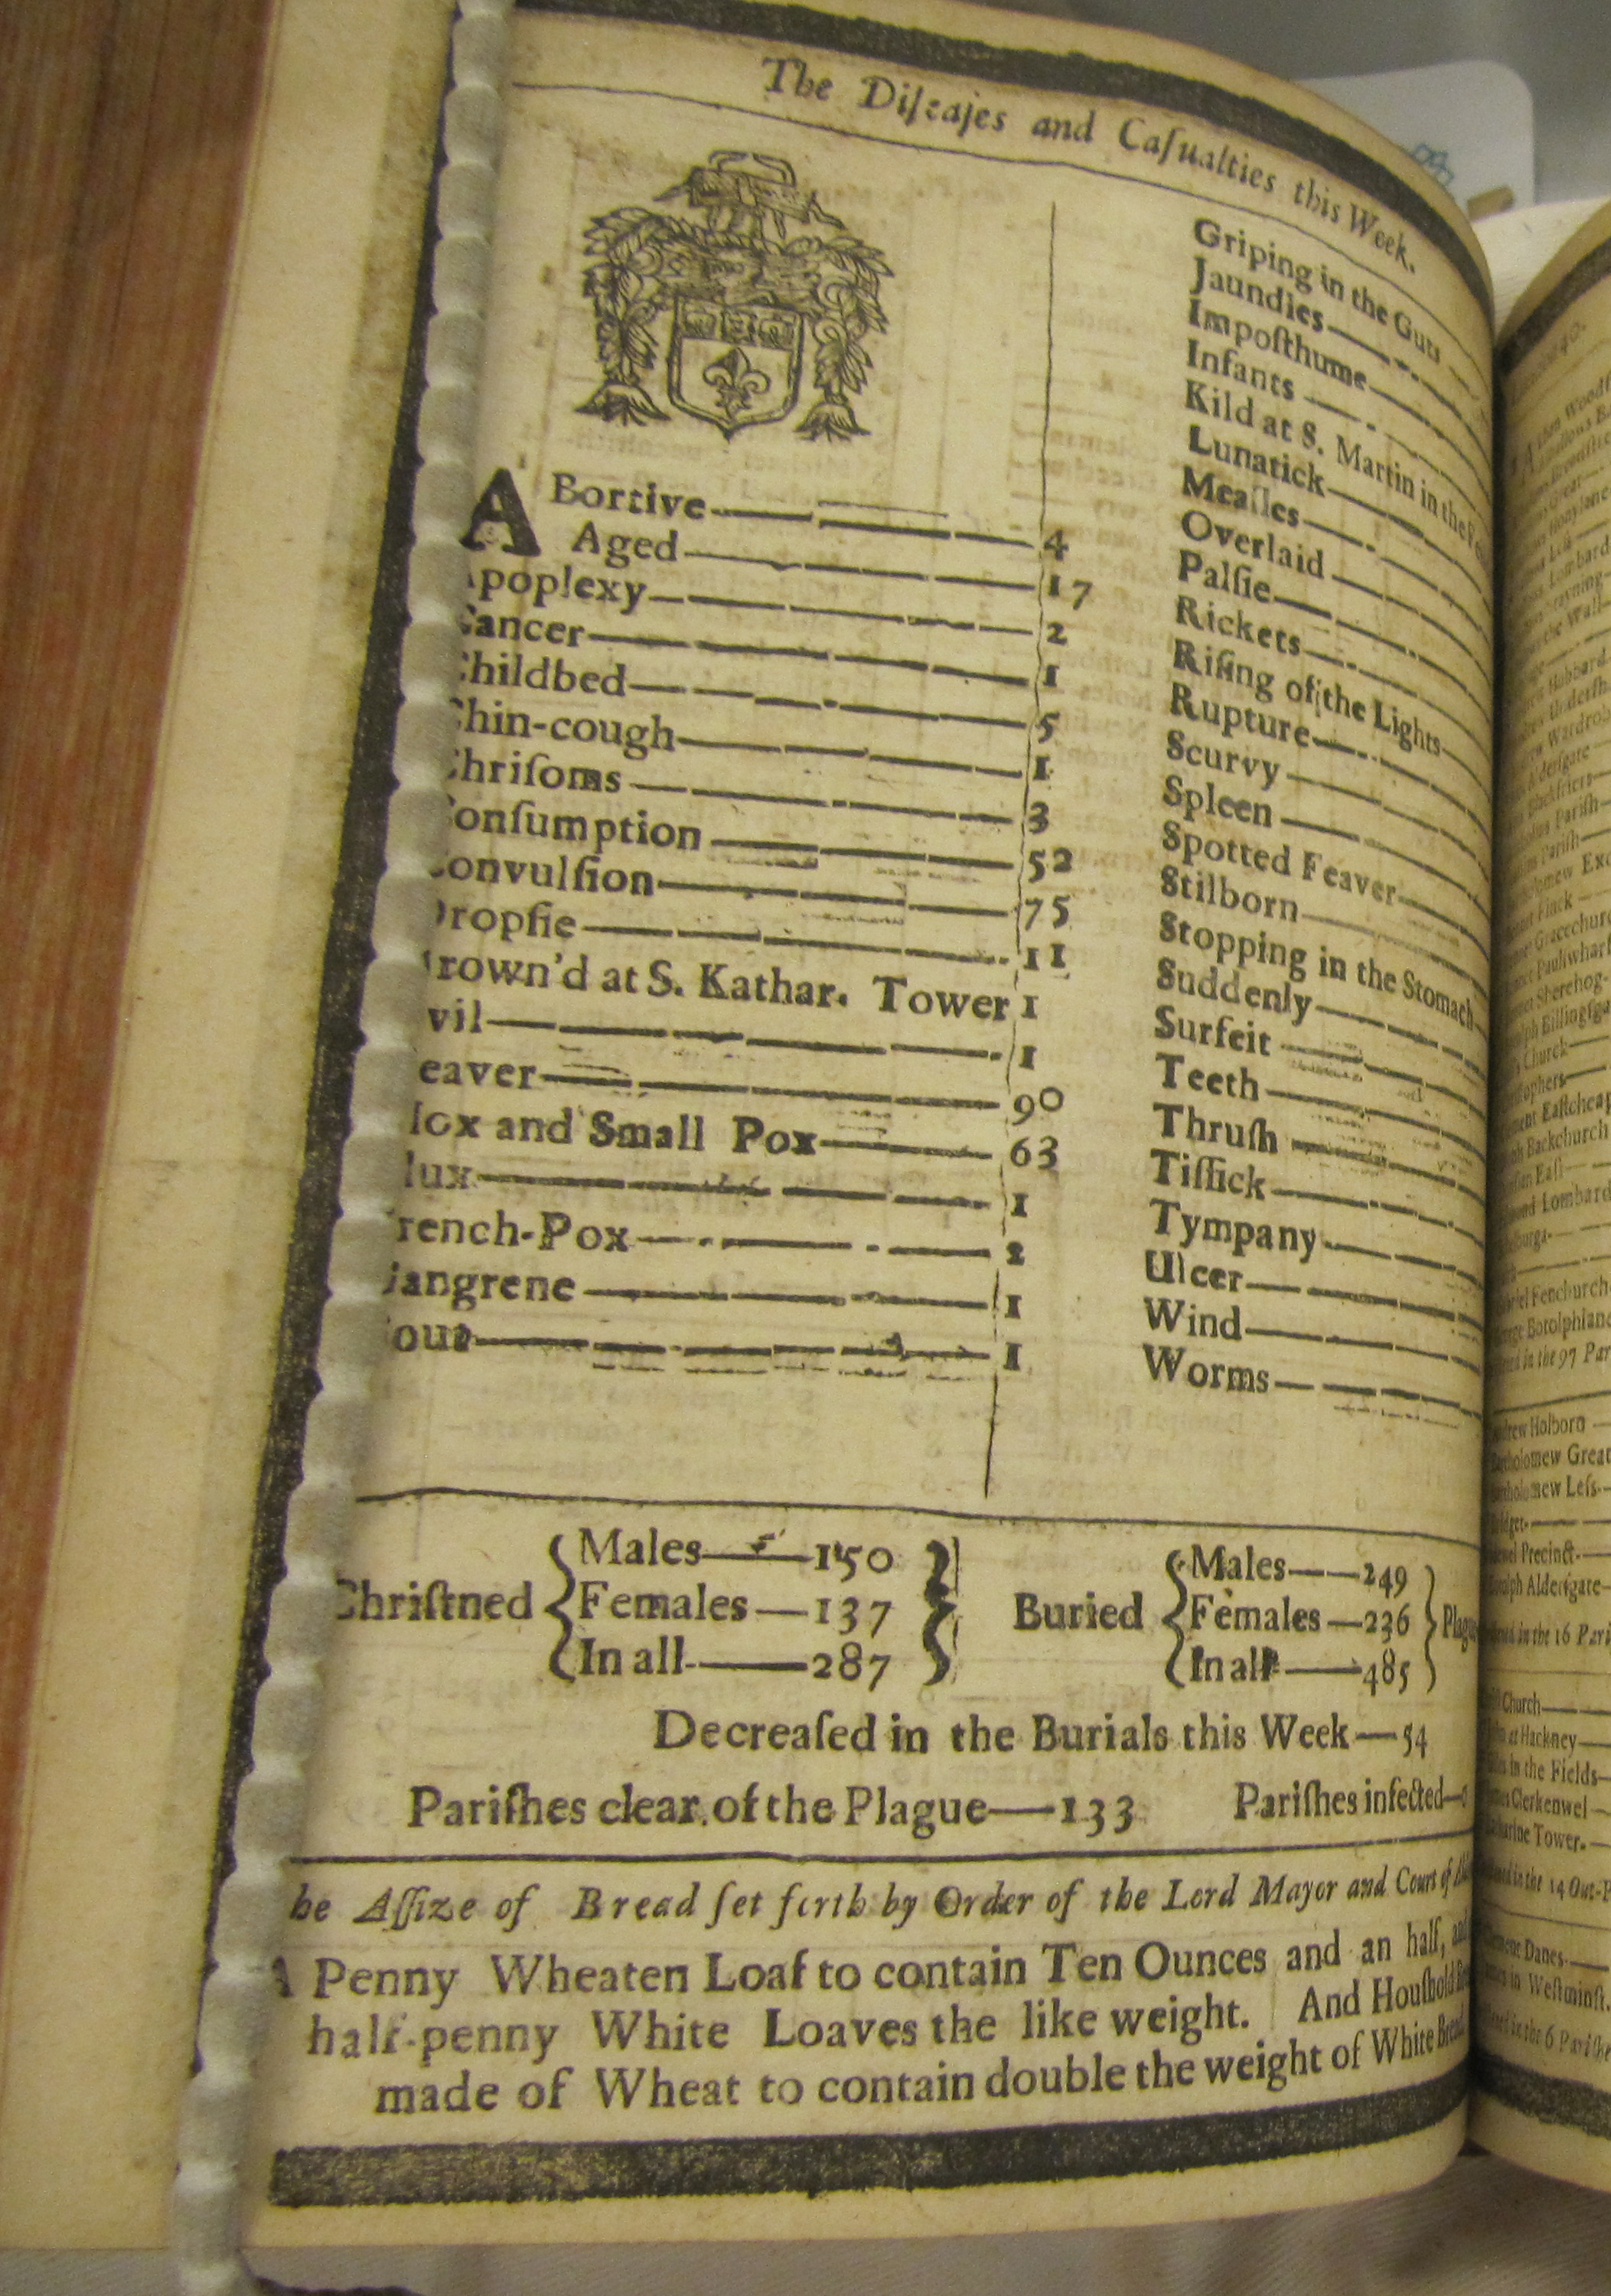 The Diſeaſes and Caſualties this Week.
ABortive 4
Aged 17
poplexy 2
ancer 1
hildbed 5
hin-cough 1
hriſoms 3
onſumption 52
onvulſion 75
ropſie 11
rown'd at S. Kathar. Tower 1
vil 1
eaver 90
lox and Small Pox 63
lux 1
rench-Pox 2
angrene 1
out 1
Griping in the Guts
Jaundies
Impoſthume
Infants
Kild at S. Martin in the
Lunatick
Meaſles
Overlaid
Palſie
Rickets
Riſing of the Lights
Rupture
Scurvy
Spleen
Spotted Feaver
Stilborn
Stopping in the Stomach
Suddenly
Surfeit
Teeth
Thruſh
Tiſſick
Tympany
Ulcer
Wind
Worms
Chriſtned
Males—150
Females—137
In all—287
Buried
Males—249
Females—236
In all—485
Plagu
Decreaſed in the Burials this Week—54
Pariſhes clear of the Plague—133 Pariſhes infected—0
he Aſſize of Bread ſet forth by Order of the Lord Mayor and Court of
A Penny Wheaten Loaf to contain Ten Ounces and an half, and
half-penny White Loaves the like weight. And Houſhold
made of Wheat to contain double the weight of White Bread.
Woodſ
Lombard
the Wall
Hubbard
Wardrob
Alderſgate
Blackfriers
Pariſh
Pariſh
Gracechurc
Paulſwharf
Sherehog
Billingſga
Church
Eaſtcheap
Backchurch
Lombard
Fenchurch
Botolphlane
in the 97 Par
drew Holborn
tholomew Great
tholomew Leſs
Precinct
olph Alderſgate
in the 16 Pari
Church
at Hackney
in the Fields
Clerkenwel
Tower
in the 14 Out-P
Danes
in Weſtminſt.
in the 6 Pariſhe